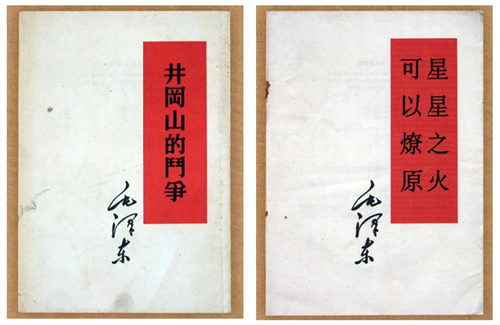 井岡山的鬥爭
毛泽东
星星之火
可以燎原
毛泽东